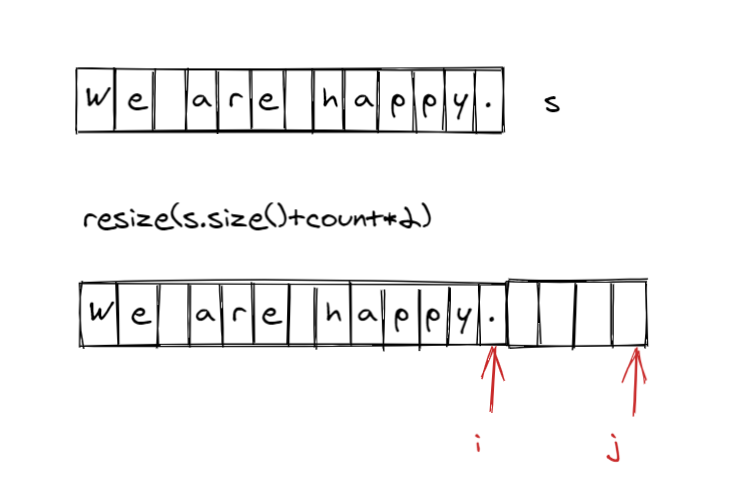 We are happy. s
resize(s.size()+count*2)
We are happy.
i j